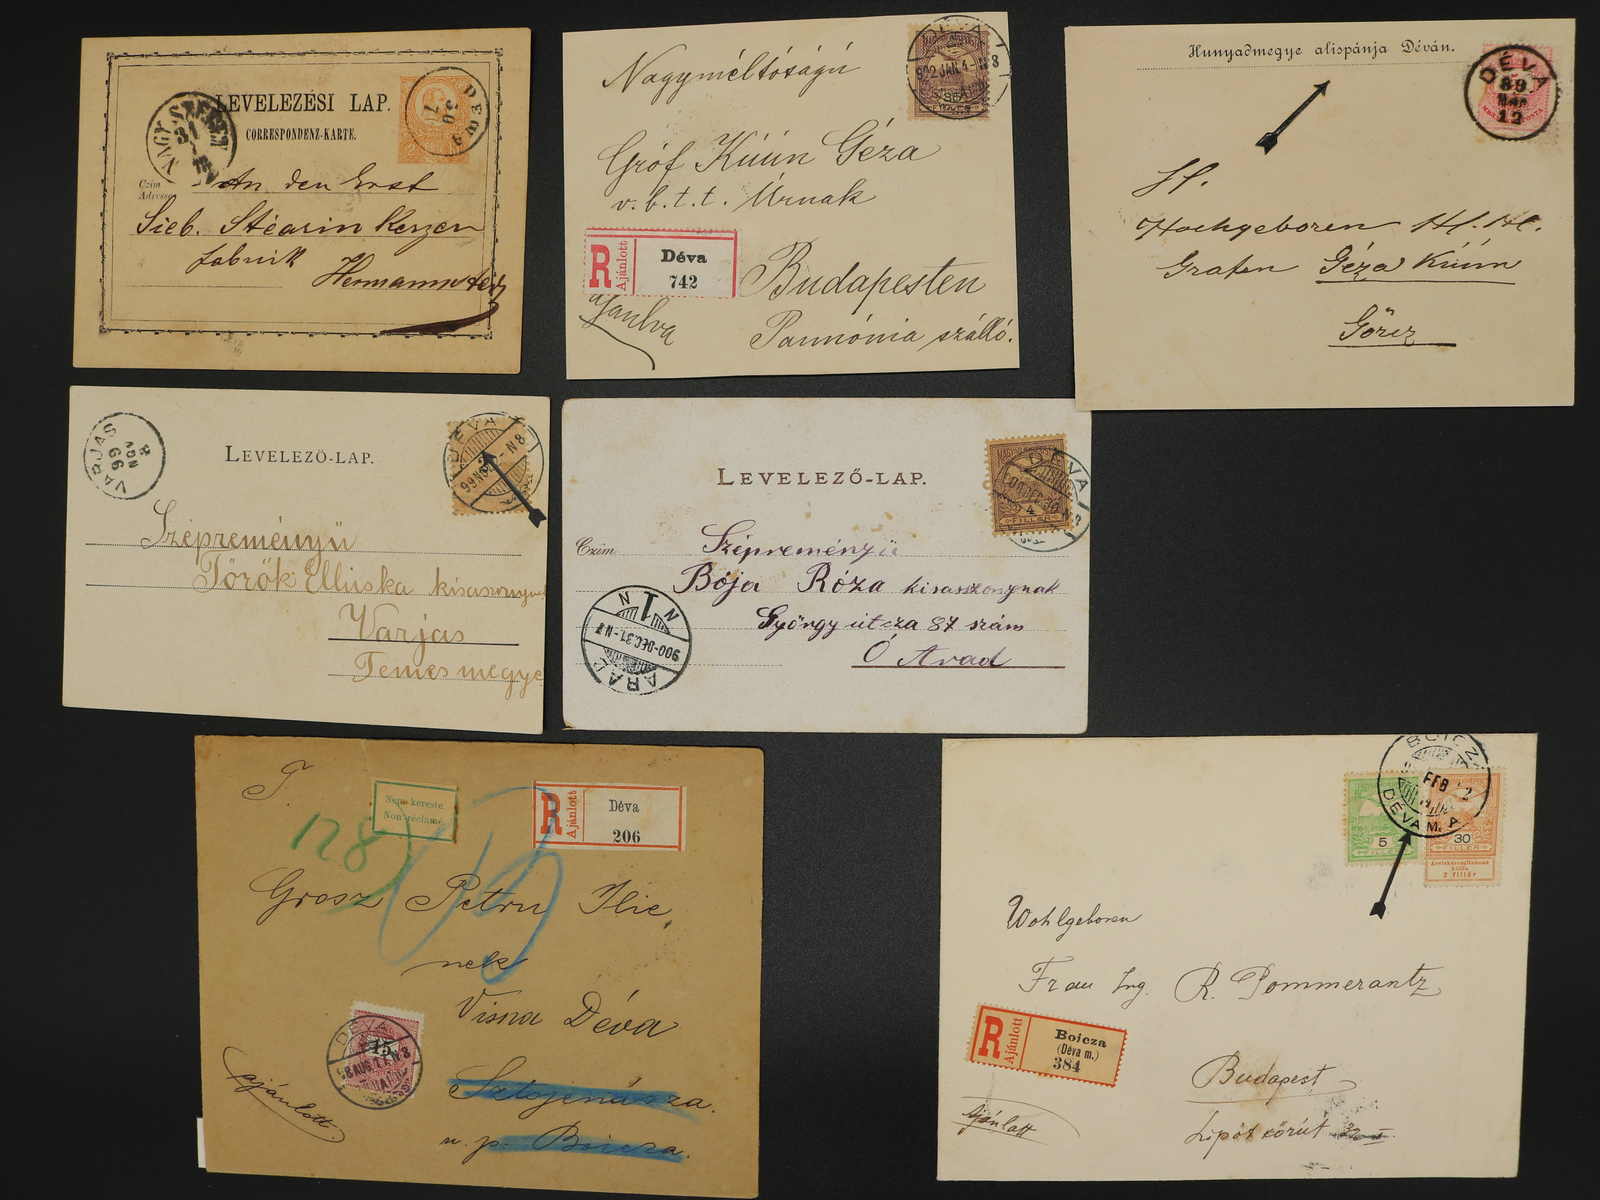 LEVELEZÉSI LAP.
CORRESPONDENZ-KARTE.
NAGY-SZEBEN
31
Czim
Adresse
An den Erst
Sieb. Stéarin Kerzen
fabrik
Hermannstadt
Nagyméltóságú
DÉVA
902 JAN. 4 - N 8
Gróf Kúún Géza
v. b. t. t. Úrnak
R
Ajánlott
Déva
742
Budapesten
Pannónia szálló.
Hunyadmegye alispánja Déván.
DÉVA
89
MAR
12
Hochgeboren H. H.
Grafen Géza Kúún
Görz
VARJAS
99
NOV
8
LEVELEZŐ-LAP.
DÉVA
Szépreményü
Török Elluska
Varjas
Temesmegye
LEVELEZŐ-LAP.
DÉVA
4
FILLÉR
Czim
Szépreményü
Bója Róza kisasszonynak
György utcza 87 szám
Ó Arad
ARAD
900 - DEC. 31 - N 7
T.
128
Nem kereste
Non réclamé
R
Ajánlott
Déva
206
Grosz Petru Ilie
nek
Visna Déva
DÉVA
15
ajánlott
u. p. Boicza.
BOICZA
FEB
DÉVA M.
5
FILLÉR
30
FILLÉR
2 fillér
Wohlgeboren
Frau Ing. R. Pommerantz
R
Ajánlott
Boicza
(Déva m.)
384
Budapest
Lipót körút
Ajánlott